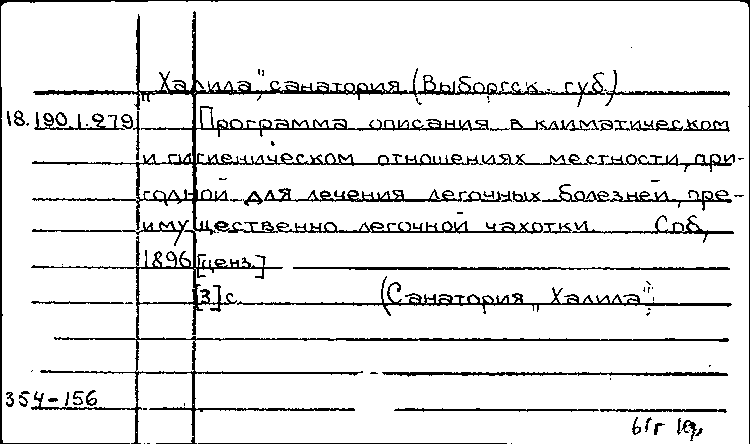 „Халила", санатория (Выборгск. губ.)
18.190.1.279 Программа описания в климатическом
и гигиеническом отношениях местности, при-
годной для лечения легочных болезней, пре-
имущественно легочной чахотки. Спб,
1896 [ценз.]
[3] с. (Санатория „Халила")
354-156